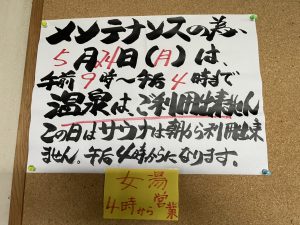 メンテナンスの為、
5月24日(月)は、
午前9時〜午后4時まで
温泉は、ご利用出来ません
この日はサウナは朝から利用出来
ません。午后4時からになります。
女湯
4時から営業